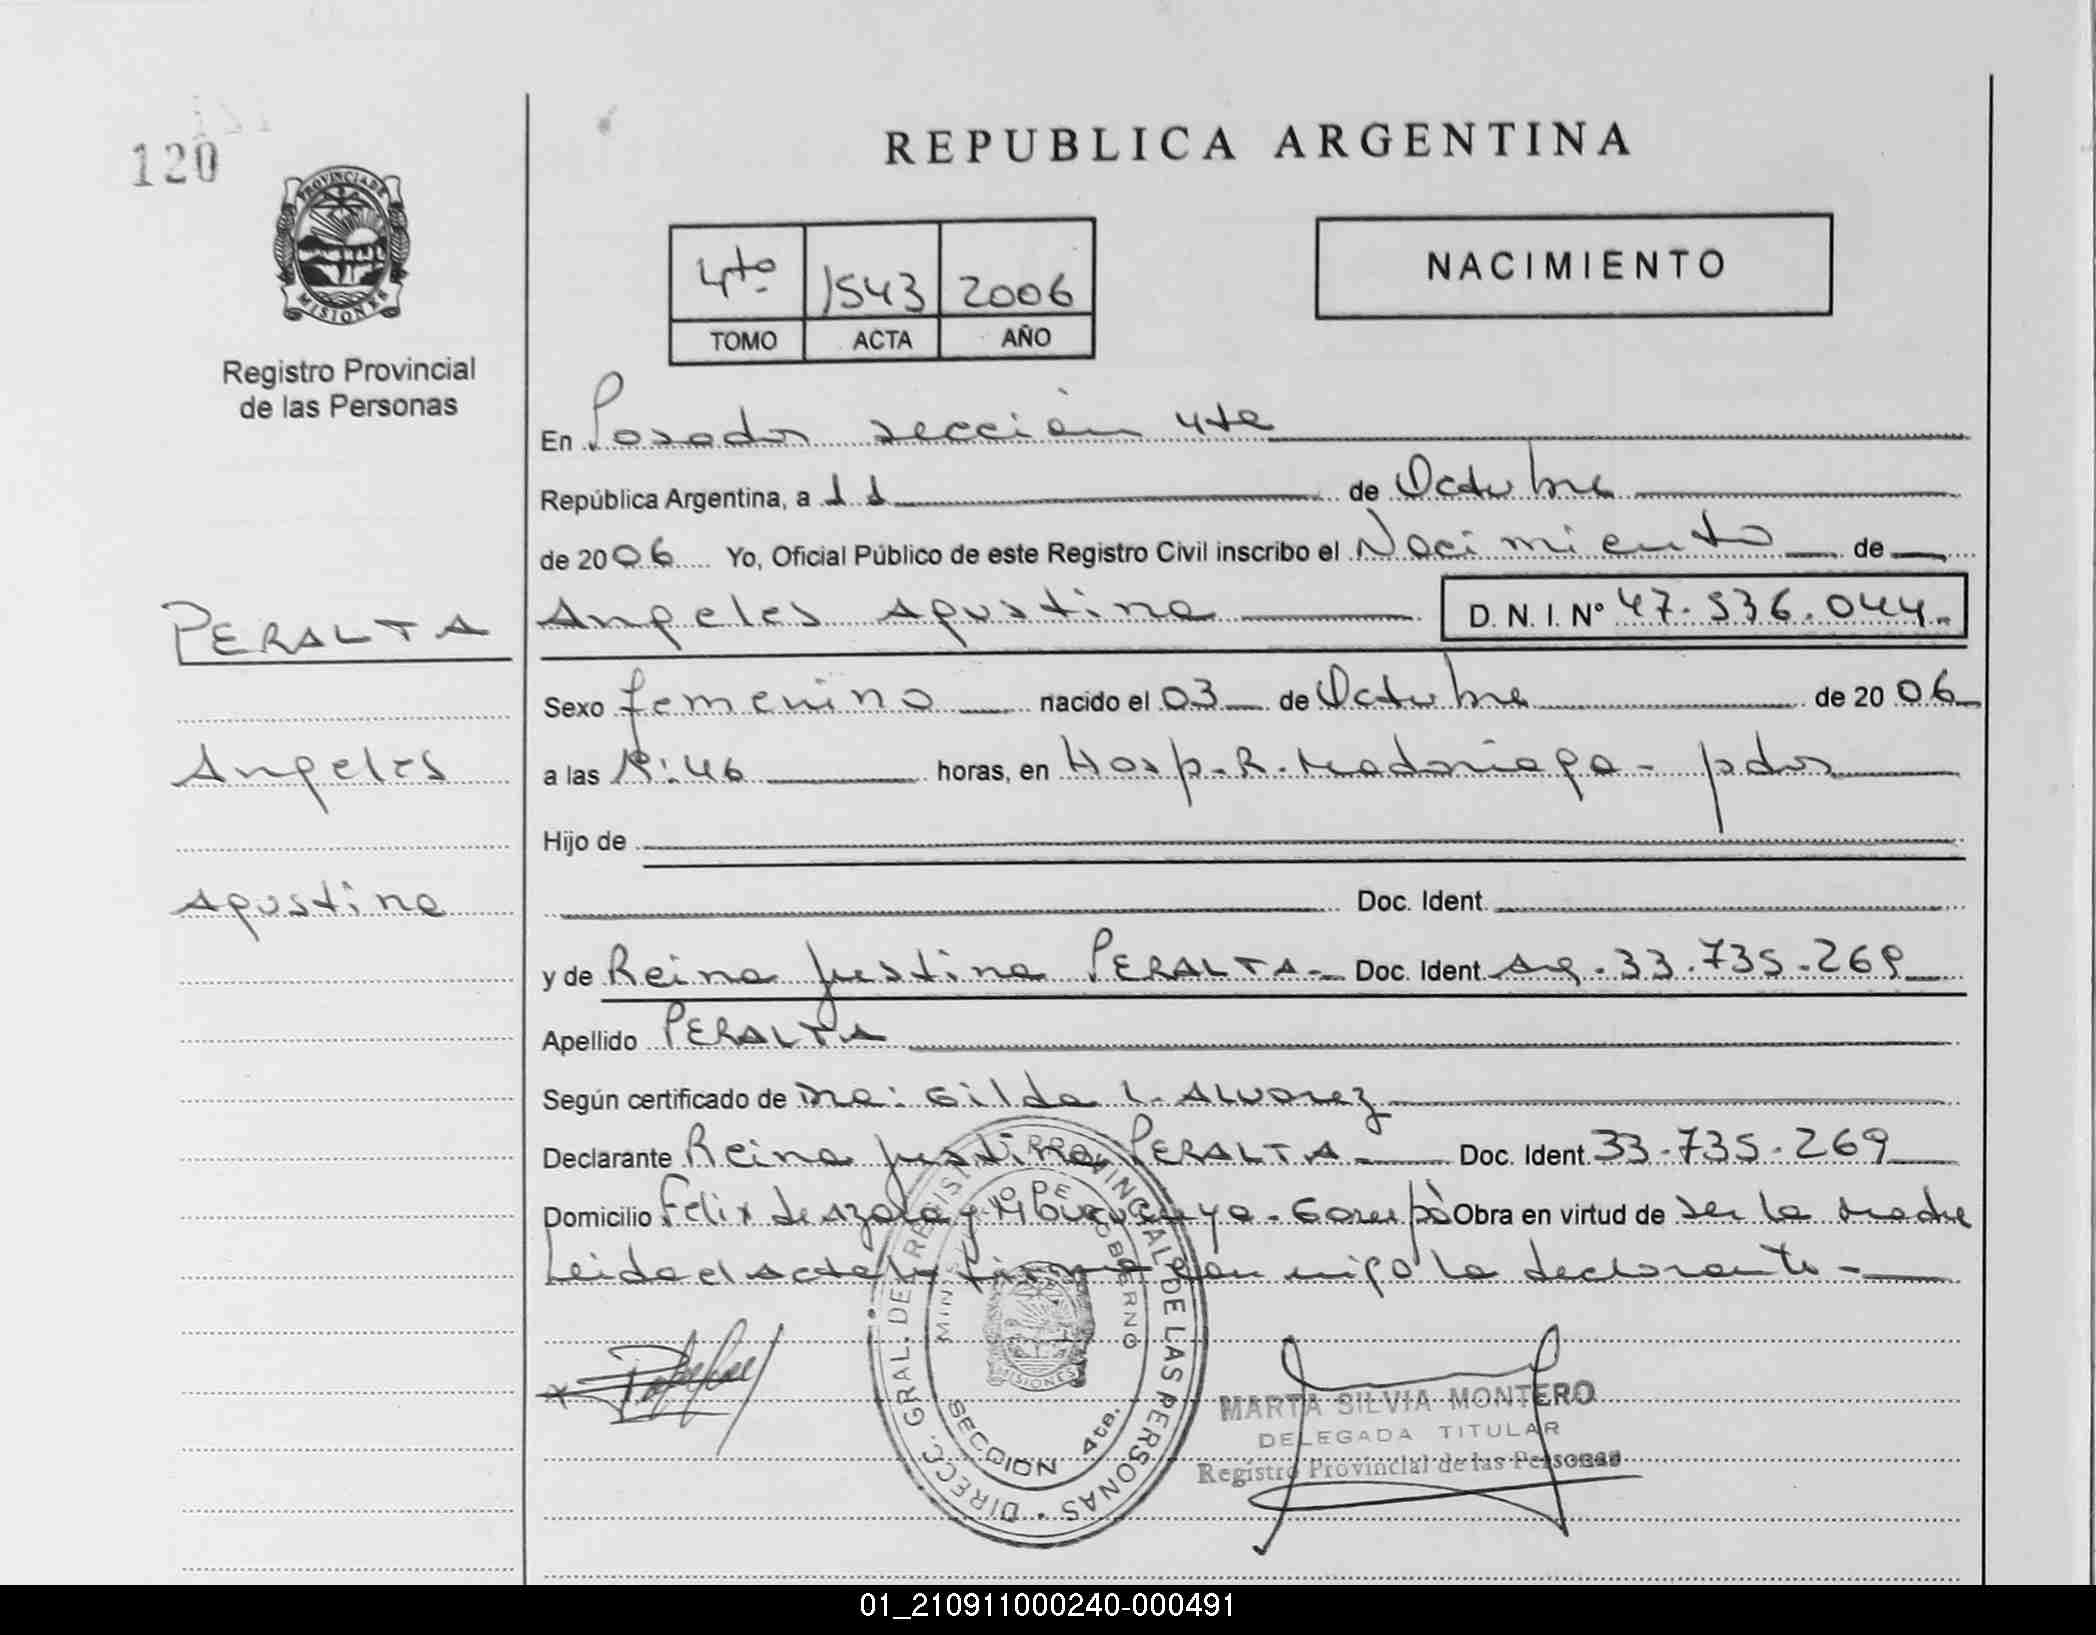 120
PROVINCIA DE
MISIONES
Registro Provincial
de las Personas
REPUBLICA ARGENTINA
4to 1543 2006
TOMO ACTA AÑO
NACIMIENTO
En Posadas sección 4ta
República Argentina, a 11 de Octubre
de 2006 Yo, Oficial Público de este Registro Civil inscribo el Nacimiento de
PERALTA
Angeles Agustina D. N. I. N° 47.536.044.
Sexo femenino nacido el 03 de Octubre de 2006
Angeles
a las :46 horas, en Hosp. R. Madariaga - pdas
Hijo de
Agustina
Doc. Ident.
y de Reina Justina PERALTA Doc. Ident. 33.735.269
Apellido PERALTA
Según certificado de Dra: Gilda L. Alvarez
Declarante Reina Justina PERALTA Doc. Ident. 33.735.269
Domicilio Felix de Azara y Garupá Obra en virtud de ser la madre
Leida el acta la firma con migo la declarante
DIRECC. GRAL. DE REGIST. PROVINCIAL DE LAS PERSONAS
MINISTERIO DE GOBIERNO
MISIONES
SECCION 4ta.
MARTA SILVIA MONTERO
DELEGADA TITULAR
Registro Provincial de las Personas
01_210911000240-000491